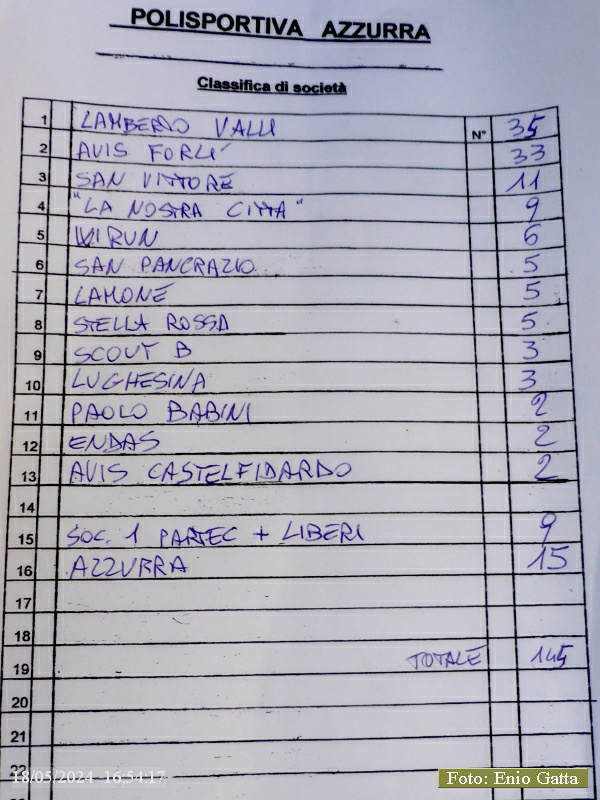 POLISPORTIVA AZZURRA
Classifica di società
1 LAMBERTO VALLI N° 35
2 AVIS FORLI' 33
3 SAN VITTORE 11
4 "LA NOSTRA CITTA" 9
5 WIRUN 6
6 SAN PANCRAZIO 5
7 LAMONE 5
8 STELLA ROSSA 5
9 SCOUT B 3
10 LUGHESINA 3
11 PAOLO BABINI 2
12 ENDAS 2
13 AVIS CASTELFIDARDO 2
14
15 SOC. 1 PARTEC + LIBERI 9
16 AZZURRA 15
17
18
19 TOTALE 145
20
21
22
18/05/2024 16:54:17
Foto: Enio Gatta